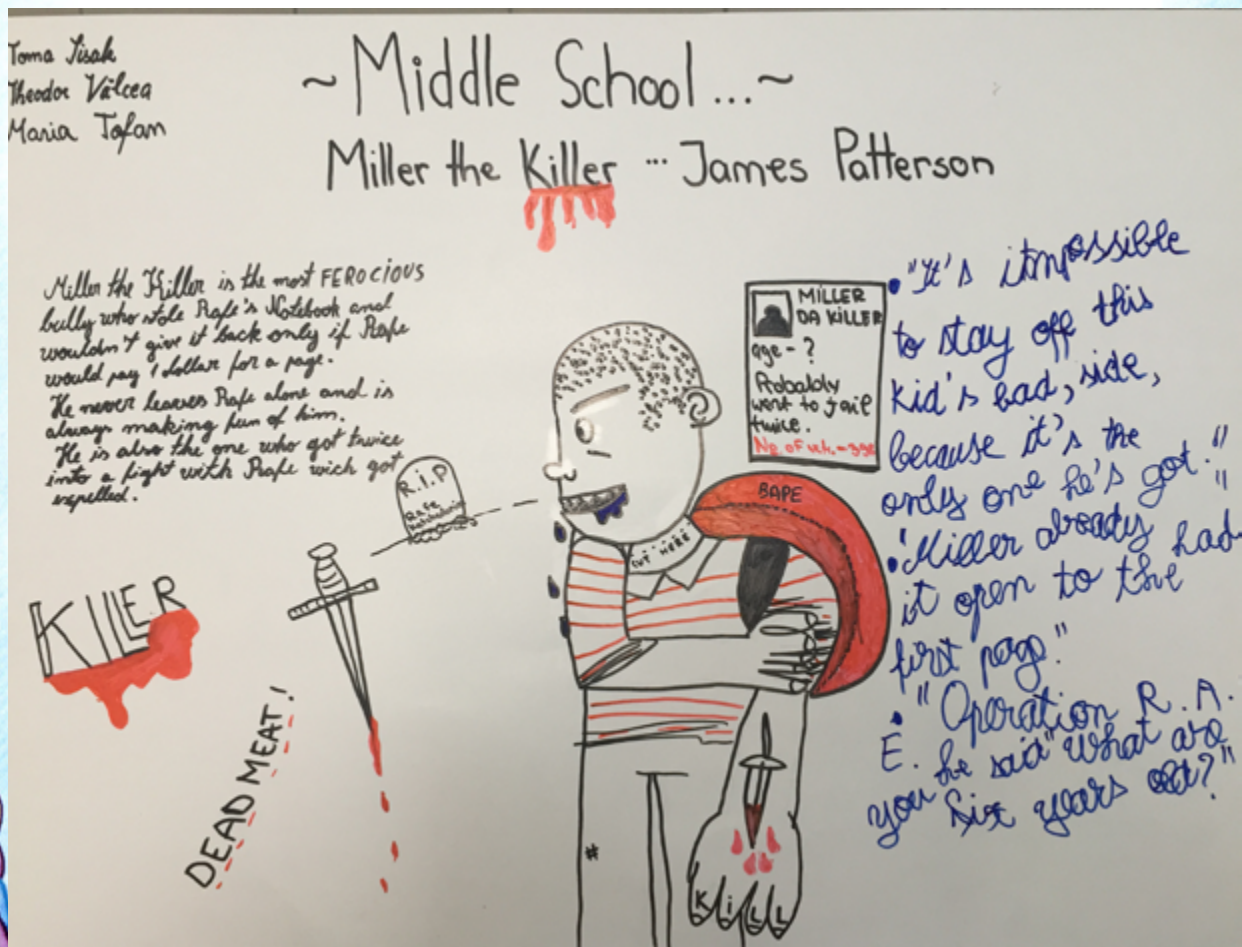 Toma Sisak
Theodor Vâlcea
Maria Tofan
~Middle School...~
Miller the Killer ... James Patterson
Miller the Killer is the most FEROCIOUS
bully who stole Rafe's Notebook and
wouldn't give it back only if Rafe
would pay 1 dollar for a page.
He never leaves Rafe alone and is
always making fun of him.
He is also the one who got twice
into a fight with Rafe wich got
expelled.
R.I.P
Rafe
KILLER
DEAD MEAT!
CUT HERE
BAPE
#
KiLL
MILLER
DA KILLER
age - ?
Probably
went to jail
twice.
No. of
• "It's itmpossible
to stay off this
kid's bad, side,
because it's the
only one he's got."
• "Miller already had
it open to the
first page."
• "Operation R. A.
F. he said "What are
you six years old?"